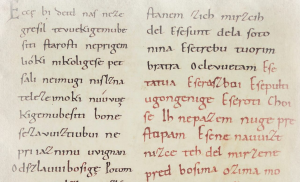 Eccę bi detd naſ neze
greſil tevuekigemube
ſiti ſtaroſti neprigem
lioki nikoligeſe pet
ſali neimugi niſlzna
teleze imoki nuúvuę
kigemube ſiti bone
ſezavuiztiubui ne
priiazninu uvignan
Odſzlauuiboſigę Potom
ſtanem zich mirzcih
del Eſeſunt dela ſoto
nina Eſetrebu tuorim
bratra Oclevuetam Eſe
tatua Eſeraſboi Eſepulti
ugongenige Eſeroti Choi
ſe Ih nepaſem nuge pre
ſtopam Eſene nauuizt
nizce teh del mirzene
pred boſima ozima mo